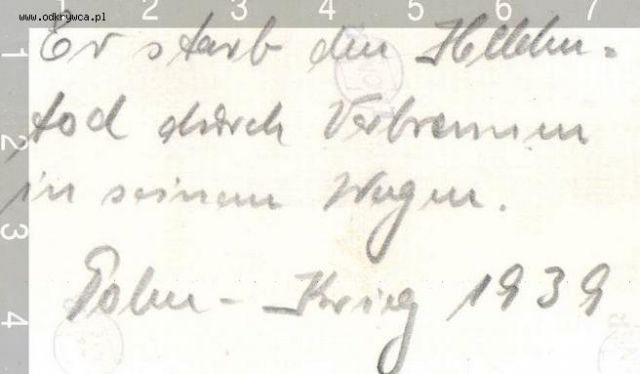 www.odkrywca.pl
1 2 3 4 5 6 7
1
2
3
4
Er starb den Helden-
tod durch Verbrennen
in seinem Wagen.
Polen - Krieg 1939